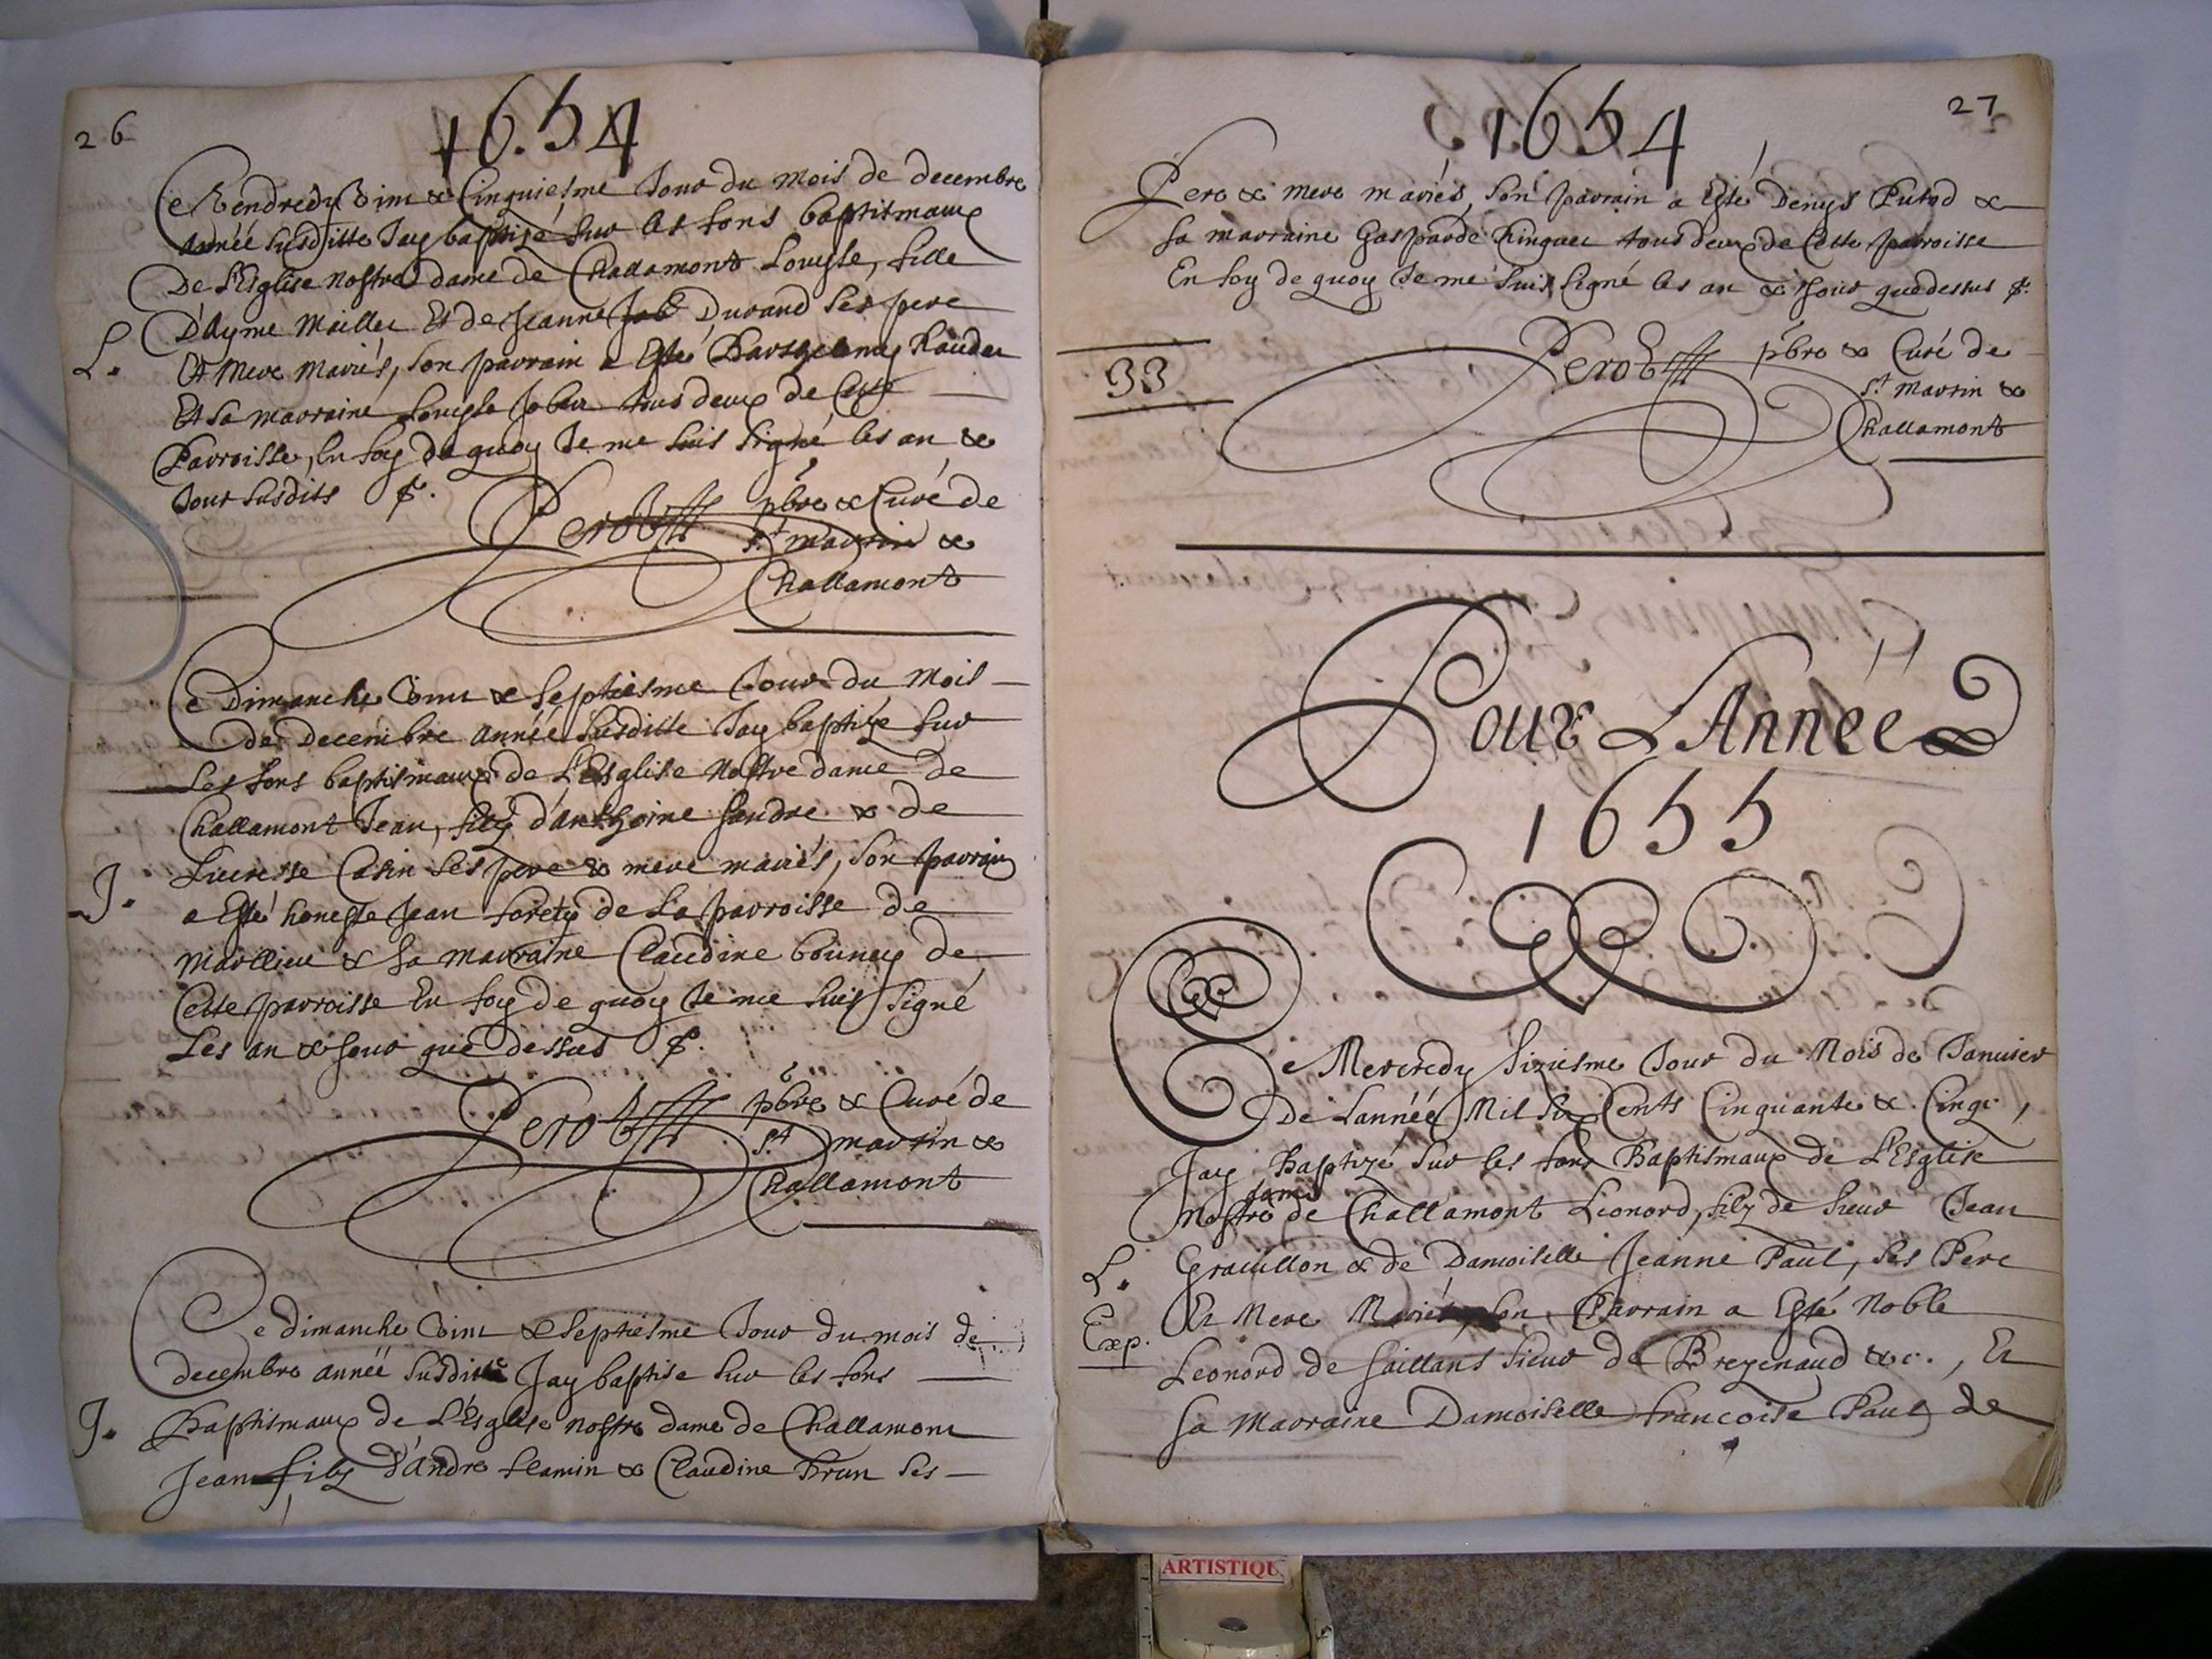 26
1654
Ce Vendredy Vint & Cinquiesme Jour du Mois de decembre
Année Susditte Jay baptizé sur les fons baptismaux
De L'Esglise Nostre dame de Challamont Louyse, fille
D'Ayme Maillet Et de Jeanne Durand Ses pere
L.
Et Mere Mariés, Son parrain a Esté Barthelemy
Et Sa marraine Louyse tous deux de Cette
Parroisse, En foy de quoy Je me suis signé les an &
Jour susdits
Perot pbre & Curé de
St martin &
Challamont
Ce Dimanche Vint & Septiesme Jour du Mois
de Decembre année Susditte Jay baptizé sur
Les fons baptismaux de L'Esglise Nostre dame de
Challamont Jean, filz d'Anthoine & de
J.
Lucresse Ses pere & mere mariés, Son parrain
a Esté honeste Jean de La parroisse de
Marlieu & Sa marraine Claudine de
Cette parroisse En foy de quoy Je me suis Signé
Les an & Jour que dessus
Perot pbre & Curé de
St martin &
Challamont
Ce dimanche Vint & Septiesme Jour du mois de
decembre année Susditte Jay baptisé sur les fons
J.
Baptismaux de L'Esglise Nostre dame de Challamont
Jean filz d'André & Claudine Brun Ses
27
1654
Pere & Mere mariés, Son parrain a Esté Denys Putod &
Sa marraine Gasparde tous deux de Cette parroisse
En foy de quoy Je me suis Signé les an & Jour que dessus
33
Perot pbre & Curé de
St martin &
Challamont
Pour L'Année
1655
Ce Mercredy Siziesme Jour du Mois de Januier
De Lannée Mil Six Cents Cinquante & Cinq,
Jay Baptizé Sur les fons Baptismaux de L'Esglise
dame
Nostre de Challamont Leonord, filz de Sieur Jean
L.
Grauillon & de Damoiselle Jeanne Paul, Ses Pere
Exp.
Et Mere Mariés, Son Parrain a Esté Noble
Leonord de Saillans Sieur de Brezenaud &c., Et
Sa Marraine Damoiselle francoise Paul de
ARTISTIQU